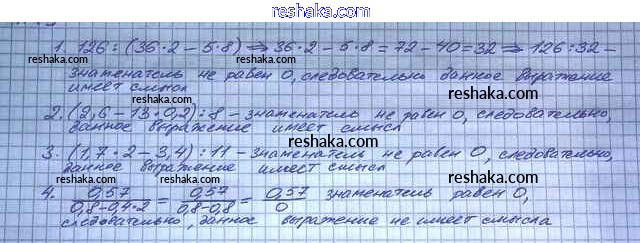 reshaka.com
1. 126 : (36·2 - 5·8) ⇒ 36·2 - 5·8 = 72 - 40 = 32 ⇒ 126:32 -
reshaka.com reshaka.com
знаменатель не равен 0, следовательно данное выражение
имеет смысл
reshaka.com
2. (2,6 - 13·0,2) : 8 - знаменатель не равен 0, следовательно,
данное выражение имеет смысл
reshaka.com reshaka.com
3. (1,7·2 - 3,4) : 11 - знаменатель не равен 0, следовательно,
данное выражение имеет смысл
reshaka.com
4. 0,57/(0,8-0,4·2) = 0,57/(0,8-0,8) = 0,57/0 знаменатель равен 0,
reshaka.com reshaka.com
следовательно, данное выражение не имеет смысла
reshaka.com